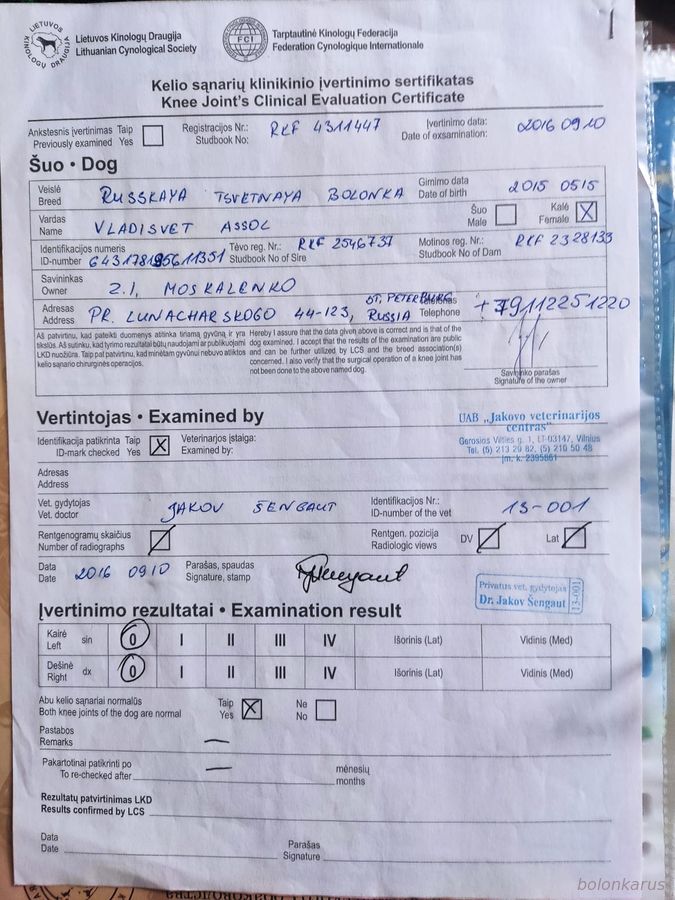 LIETUVOS KINOLOGŲ DRAUGIJA
Lietuvos Kinologų Draugija
Lithuanian Cynological Society
FCI
Tarptautinė Kinologų Federacija
Federation Cynologique Internationale
Kelio sąnarių klinikinio įvertinimo sertifikatas
Knee Joint's Clinical Evaluation Certificate
Ankstesnis įvertinimas Taip
Previously examined Yes
Registracijos Nr.: RKF 4311447
Studbook No:
Įvertinimo data: 2016 09 10
Date of exsamination:
Šuo • Dog
Veislė
Breed RUSSKAYA TSVETNAYA BOLONKA
Gimimo data
Date of birth 2015 05 15
Vardas
Name VLADISVET ASSOL
Šuo
Male
Kalė
Female X
Identifikacijos numeris
ID-number
Tėvo reg. Nr.: RKF 2546737
Studbook No of Sire
Motinos reg. Nr.: RKF 2328133
Studbook No of Dam
Savininkas
Owner Z.I, MOSKALENKO
Adresas
Address PR. LUNACHARSKOGO 44-123, ST, PETERBURG RUSSIA
Telefonas
Telephone +79112251220
Aš patvirtinu, kad pateikti duomenys atitinka tiriamą gyvūną ir yra
tikslūs. Aš sutinku, kad tyrimo rezultatai būtų naudojami ar publikuojami
LKD nuožiūra. Taip pat patvirtinu, kad minėtam gyvūnui nebuvo atliktos
kelio sąnario chirurginės operacijos.
Hereby I assure that the data given above is correct and is that of the
dog examined. I accept that the results of the examination are public
and can be further utilized by LCS and the breed association(s)
concerned. I also verify that the surgical operation of a knee joint has
not been done to the above named dog.
Savininko parašas
Signature of the owner
Vertintojas • Examined by
Identifikacija patikrinta Taip
ID-mark checked Yes X
Veterinarijos įstaiga:
Examined by:
UAB „Jakovo veterinarijos
centras"
Gerosios Vilties g. 1, LT-03147, Vilnius
Tel. (5) 213 29 82, (5) 210 50 48
Įm. k. 2395861
Adresas
Address
Vet. gydytojas
Vet. doctor JAKOV ŠENGAUT
Identifikacijos Nr.:
ID-number of the vet 13-001
Rentgenogramų skaičius
Number of radiographs
Rentgen. pozicija
Radiologic views
DV
Lat
Data
Date 2016 09 10
Parašas, spaudas
Signature, stamp
Privatus vet. gydytojas
Dr. Jakov Šengaut
13-001
Įvertinimo rezultatai • Examination result
Kairė
Left sin 0 I II III IV Išorinis (Lat) Vidinis (Med)
Dešinė
Right dx 0 I II III IV Išorinis (Lat) Vidinis (Med)
Abu kelio sąnariai normalūs
Both knee joints of the dog are normal
Taip
Yes X
Ne
No
Pastabos
Remarks —
Pakartotinai patikrinti po
To re-checked after —
mėnesių
months
Rezultatų patvirtinimas LKD
Results confirmed by LCS
Data
Date
Parašas
Signature
bolonkarus